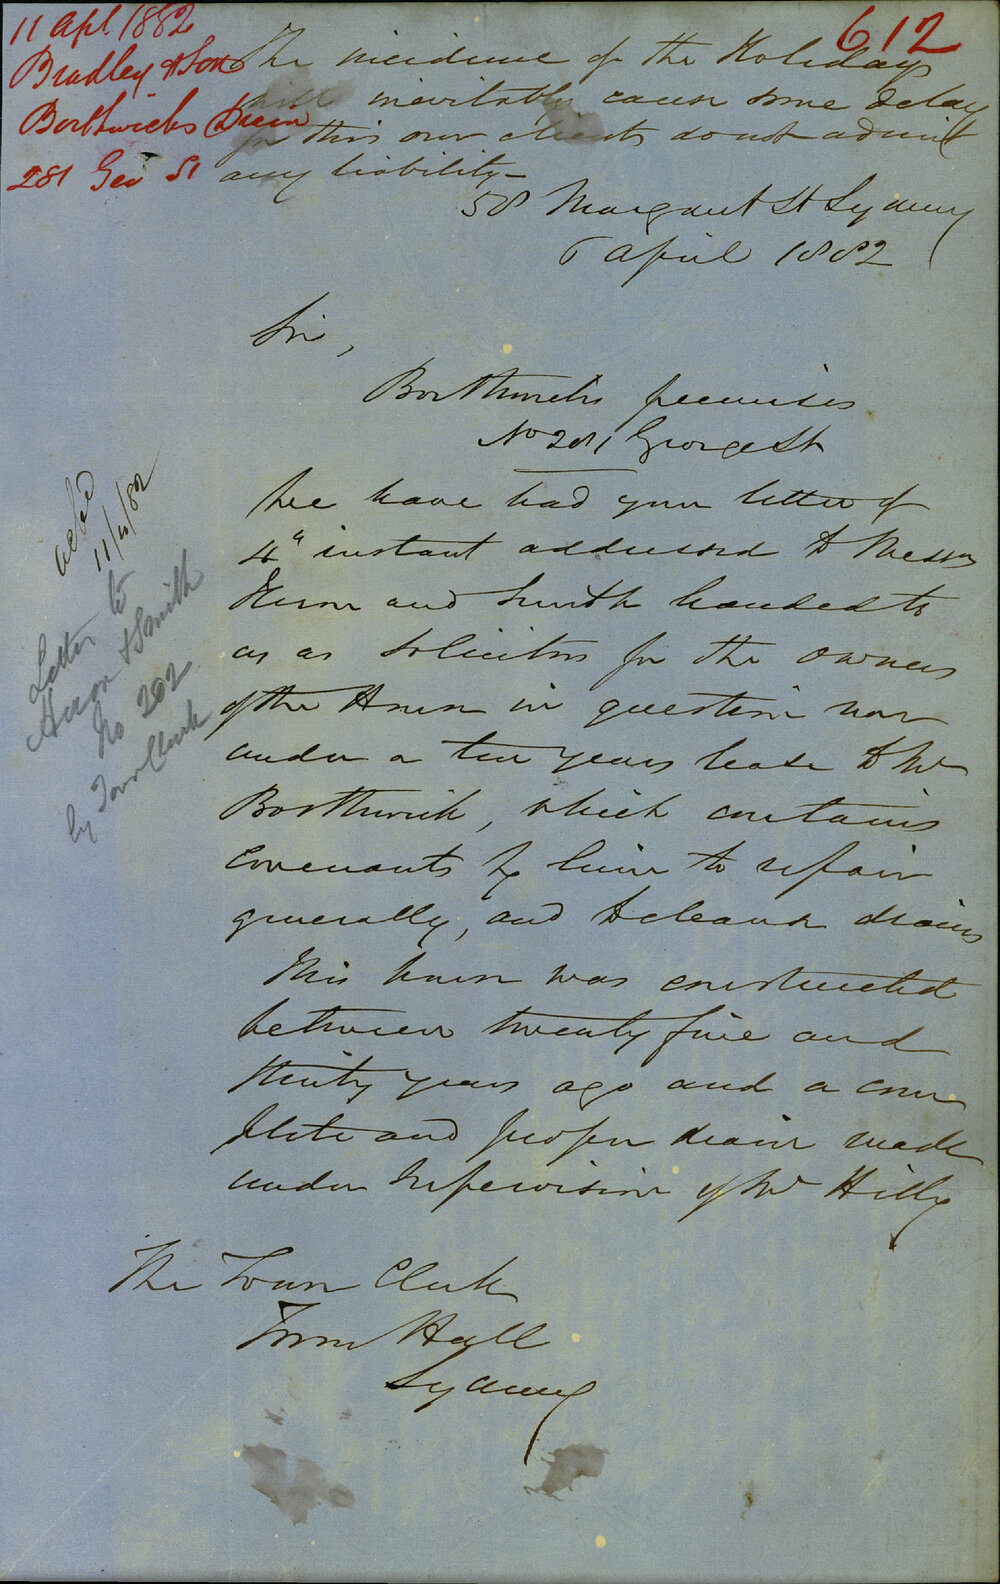 11 Apl 1882
Bradley & Son
Borthwicks Drain
281 Geo St
612
The incidence of the Holidays
will inevitably cause some delay
for this our clients do not admit
any liability -
58 Margaret St Sydney
6 April 1882
Sir,
Borthwicks premises
No 281 George St
We have had your letter of
4th instant addressed to Messrs
Heron and Smith handed to
us as solicitors for the owners
of the House in question now
under a ten years lease to Mr
Borthwick, which contains
covenants by him to repair
generally, and to cleanse drains
This house was constructed
between twenty five and
thirty years ago and a com
plete and proper drain made
under supervision of Mr Hilly
The Town Clerk
Town Hall
Sydney
Ackd
11/4/82
Letter to
Heron & Smith
No 202
by Town Clerk